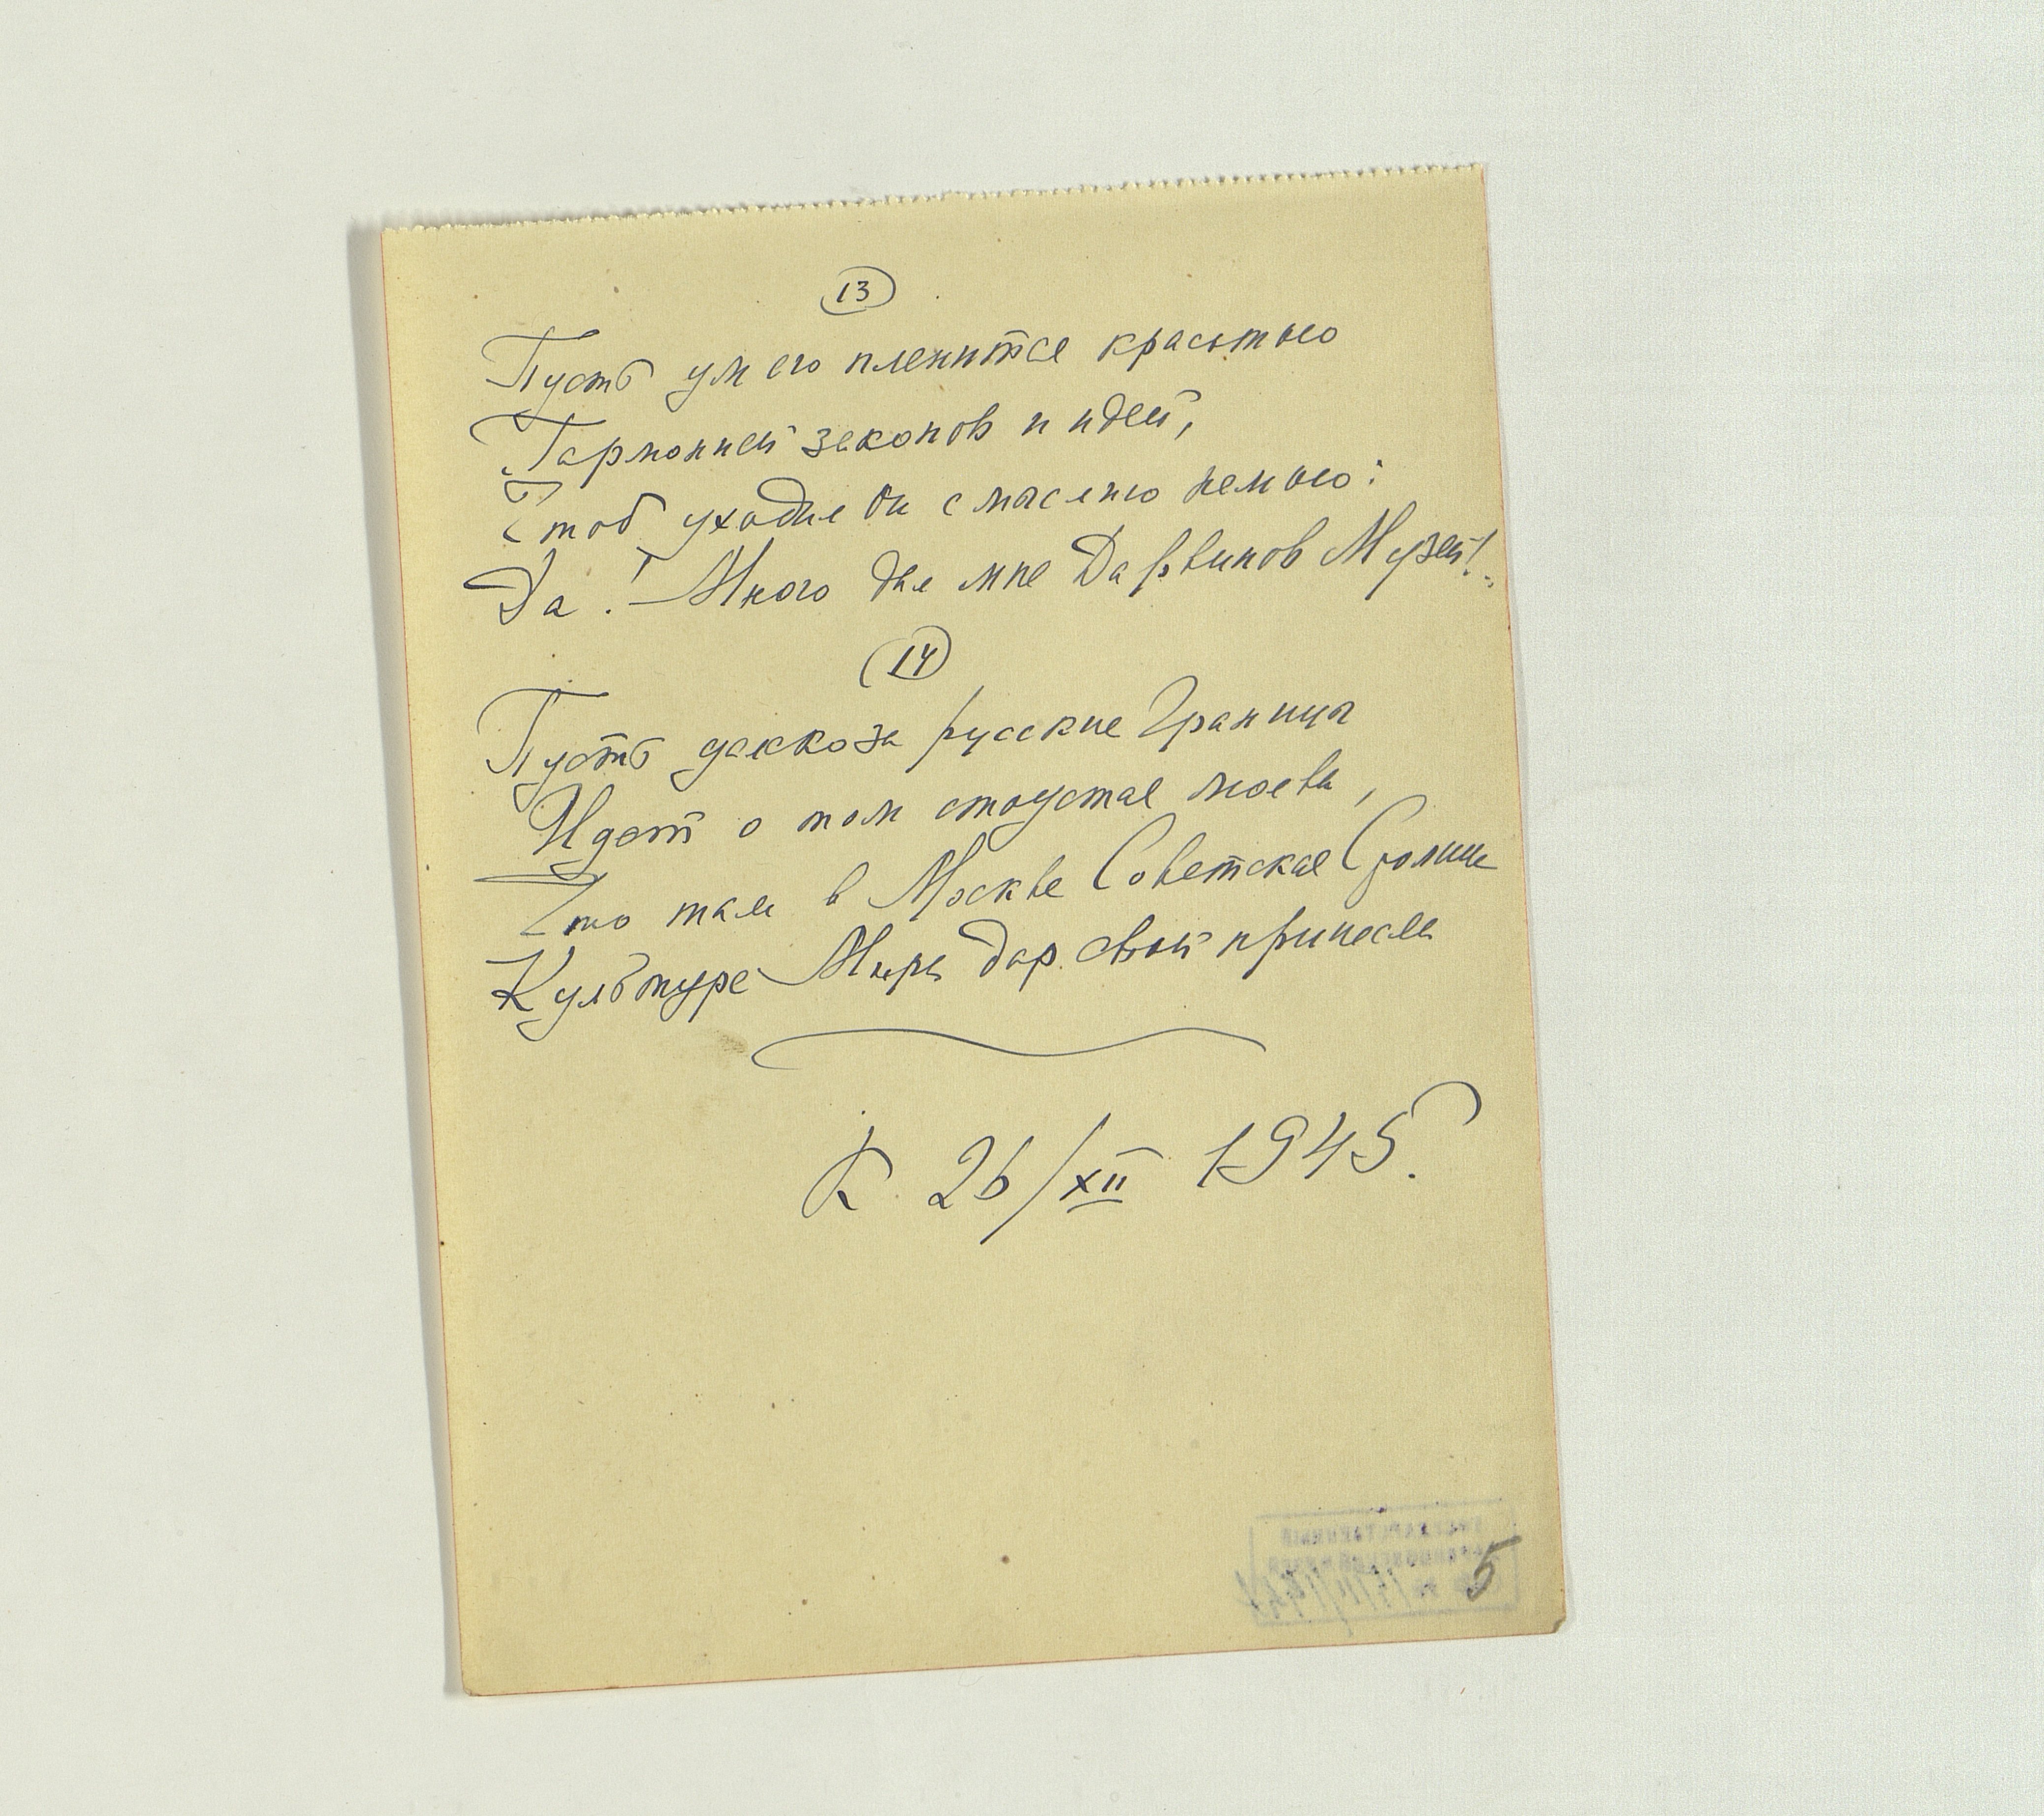 13
Пусть ум его пленится красотою
Гармонией законов и идей,
Чтоб уходил он с мыслию немою:
Да! Много дал мне Дарвинов Музей!
14
Пусть далеко за русские Границы
Идет о том стоустая молва,
Что там в Москве Советская Столица
Культуре Мира дар свой принесла
К 26/XII 1945.
5